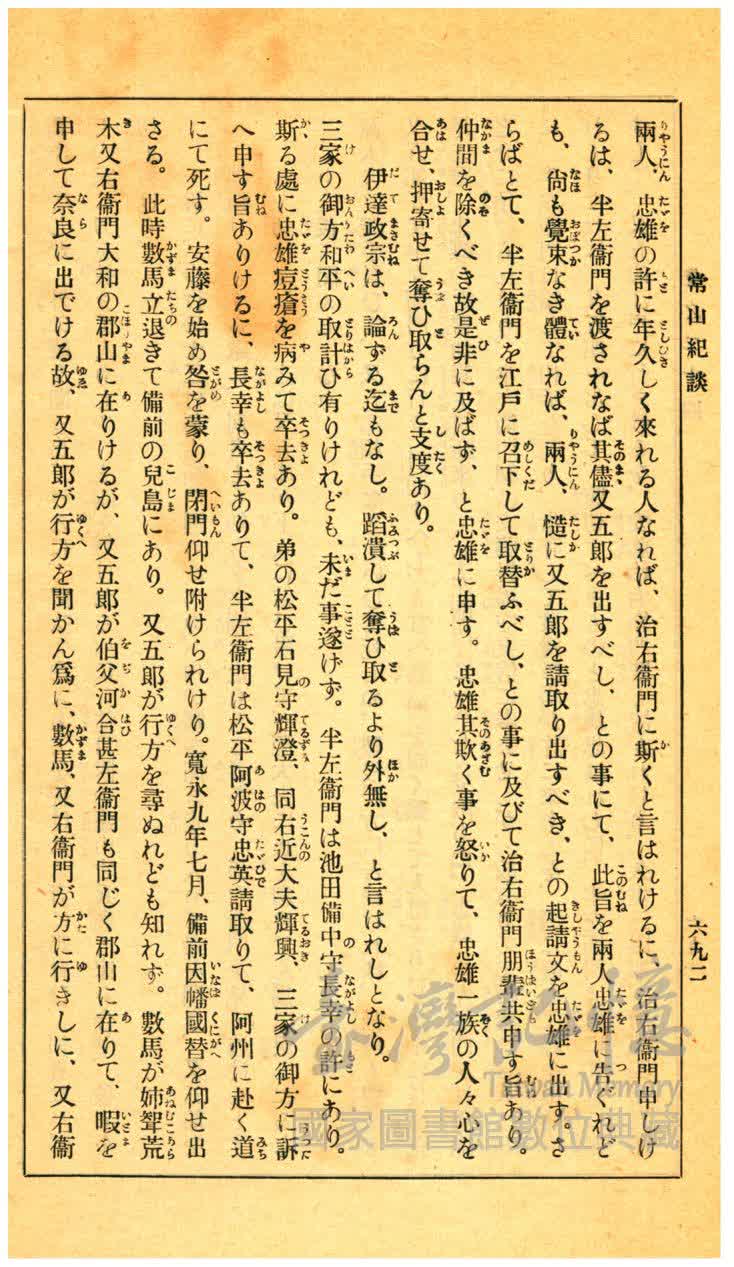 常山紀談
六九二
兩人、忠雄の許に年久しく來れる人なれば、治右衞門に斯くと言はれけるに、治右衞門申しけ
るは、半左衞門を渡されなば其儘又五郎を出すべし、との事にて、此旨を兩人忠雄に吿ぐれど
も、尙も覺束なき體なれば、兩人、慥に又五郎を請取り出すべき、との起請文を忠雄に出す。さ
らばとて、半左衞門を江戶に召下して取替ふべし、との事に及びて治右衞門朋輩共申す旨あり。
仲間を除くべき故是非に及ばず、と忠雄に申す。忠雄其欺く事を怒りて、忠雄一族の人々心を
合せ、押寄せて奪ひ取らんと支度あり。
伊達政宗は、論ずる迄もなし。蹈潰して奪ひ取るより外無し、と言はれしとなり。
三家の御方和平の取計ひ有りけれども、未だ事遂げず。半左衞門は池田備中守長幸の許にあり。
斯る處に忠雄痘瘡を病みて卒去あり。弟の松平石見守輝澄、同右近大夫輝興、三家の御方に訴
へ申す旨ありけるに、長幸も卒去ありて、半左衞門は松平阿波守忠英請取りて、阿州に赴く道
にて死す。安藤を始め咎を蒙り、閉門仰せ附けられけり。寬永九年七月、備前因幡國替を仰せ出
さる。此時數馬立退きて備前の兒島にあり。又五郎が行方を尋ぬれども知れず。數馬が姉聟荒
木又右衞門大和の郡山に在りけるが、又五郎が伯父河合甚左衞門も同じく郡山に在りて、暇を
申して奈良に出でける故、又五郎が行方を聞かん爲に、數馬、又右衞門が方に行きしに、又右衞
臺灣記憶
Taiwan Memory
國家圖書館數位典藏